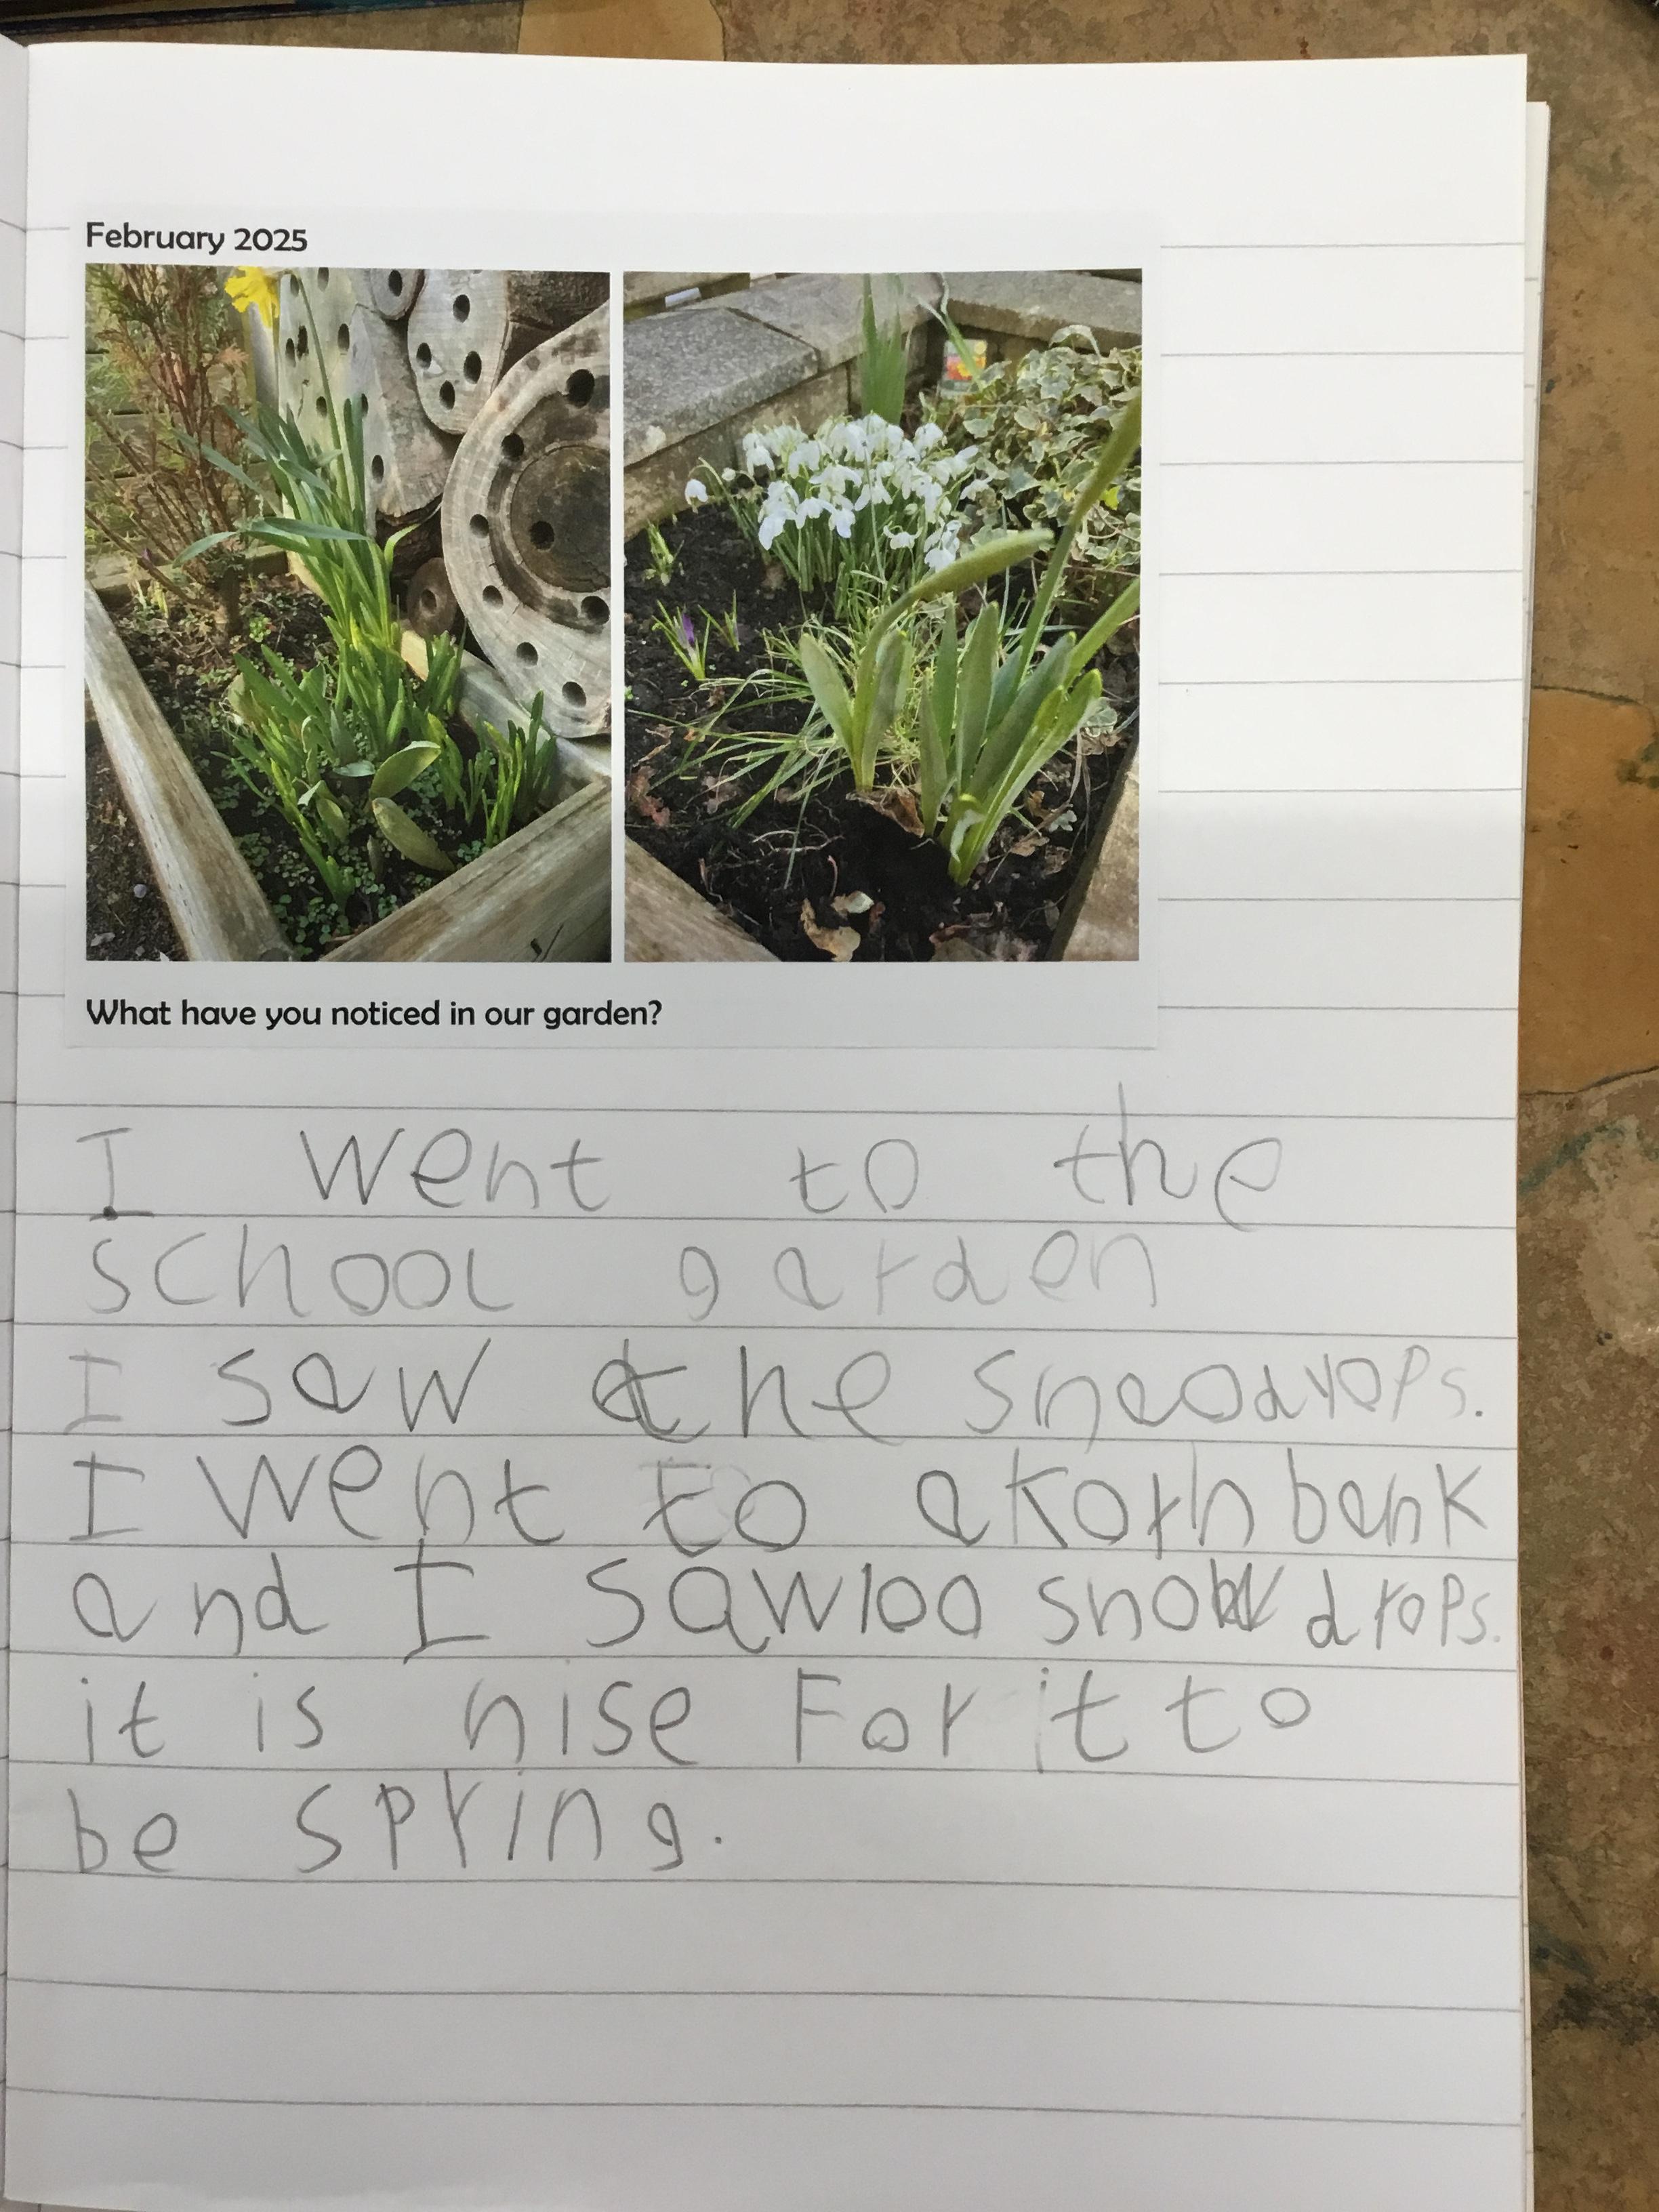 February 2025
What have you noticed in our garden?
I went to the
school garden
I saw the sneodrops.
I went to akorn bank
and I saw 100 snow drops.
it is nise For it to
be spring.